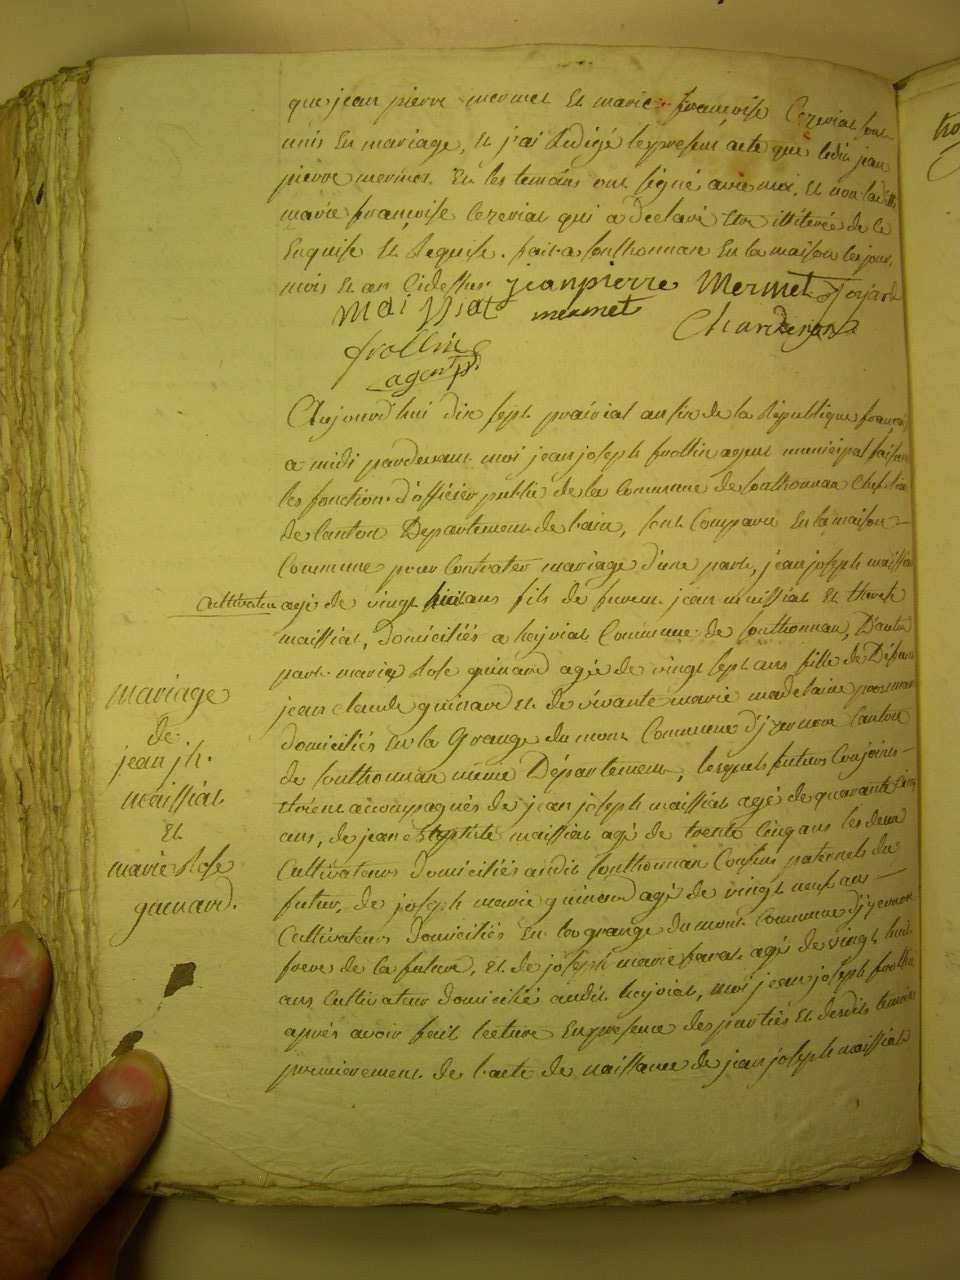 que jean pierre mermet Et marie françoise Cezeriat sont
unis En mariage, Et j'ai Rédigé le present acte que ledit jean
pierre mermet. Et les temoins ont signé avec moi, Et non ladite
marie françoise Cezeriat qui a déclaré Etre illiterée de ce
Enquise Et Requise. fait a sonthonnax En la maison les jour,
mois Et an Cidessus jeanpierre Mermet
Maissiat mermet
frollin
agent
Aujourd'hui dix sept prairial an six de la République française
a midi pardevant moi jean joseph frollin agent municipal faisant
les fonction d'officier public de la Commune de sonthonnax Chef lieu
de Canton Departement de l'ain, sont Comparu En la maison
Commune pour Contracter mariage d'une part, jean joseph maissiat
Cultivateur agé de vingt huit ans fils de furent jean maissiat Et therese
maissiat, domiciliés a heyriat Commune de sonthonnax, D'autre
part marie Rose guinard agée de vingt sept ans fille de Défunt
jean claude guinard Et de vivante marie madelaine
domiciliés En la Grange du mont Commune d'jzernore Canton
de sonthonnax même Département, lesquels futurs Conjoints
étoient accompagnés de jean joseph maissiat agé de quarante Cinq
ans, de jean Baptiste maissiat agé de trente Cinq ans les deux
Cultivateurs domiciliés audit sonthonnax Cousins paternels du
futur, de joseph marie guinard agé de vingt neuf ans
Cultivateur domiciliés En la grange du mont Commune d'jzernore
frere de la future, Et de joseph marie agés de vingt huit
ans Cultivateur domicilié audit heyriat, moi jean joseph frollin
après avoir fait lecture En presence des parties Et desdits temoins
premierement de l'acte de naissance de jean joseph maissiat
mariage
de
jean jh.
maissiat
Et
marie Rose
guinard.